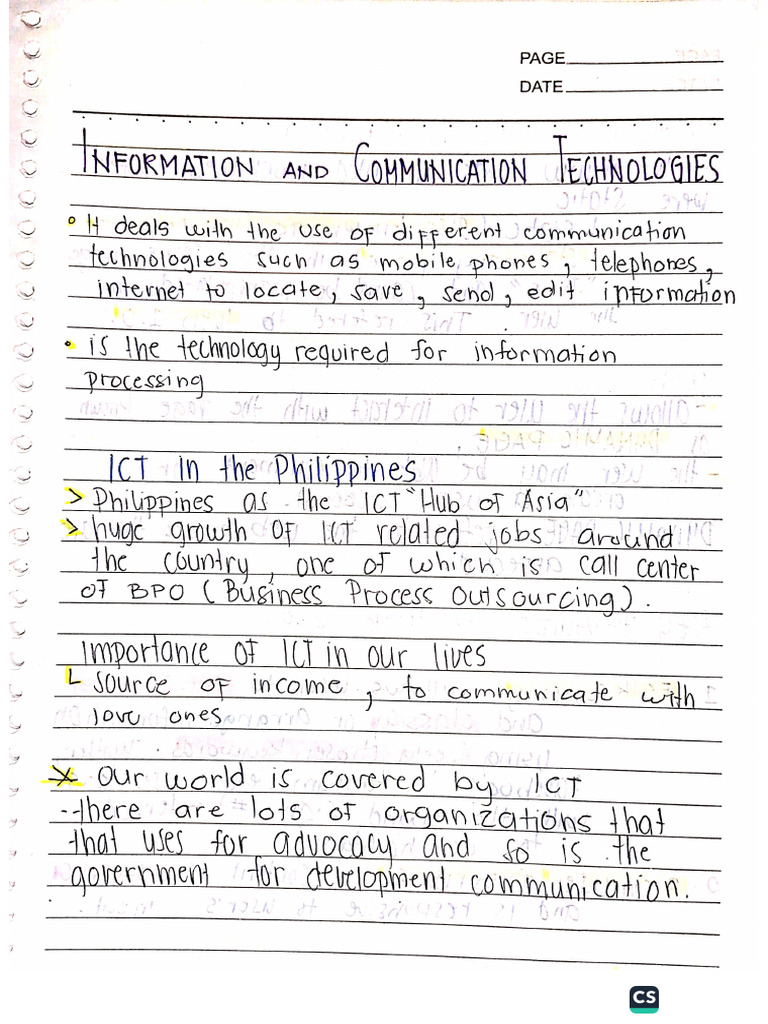 PAGE
DATE
INFORMATION AND COMMUNICATION TECHNOLOGIES
° It deals with the use of different communication
technologies such as mobile phones, telephones,
internet to locate, save, send, edit information
• is the technology required for information
processing
ICT in the Philippines
> Philippines as the ICT "Hub of Asia"
> huge growth of ICT related jobs around
the country, one of which is call center
of BPO (Business Process Outsourcing).
Importance of ICT in our lives
└ source of income, to communicate with
love ones
X Our world is covered by ICT
--there are lots of organizations that
that uses for advocacy and so is the
government for development communication.
CS